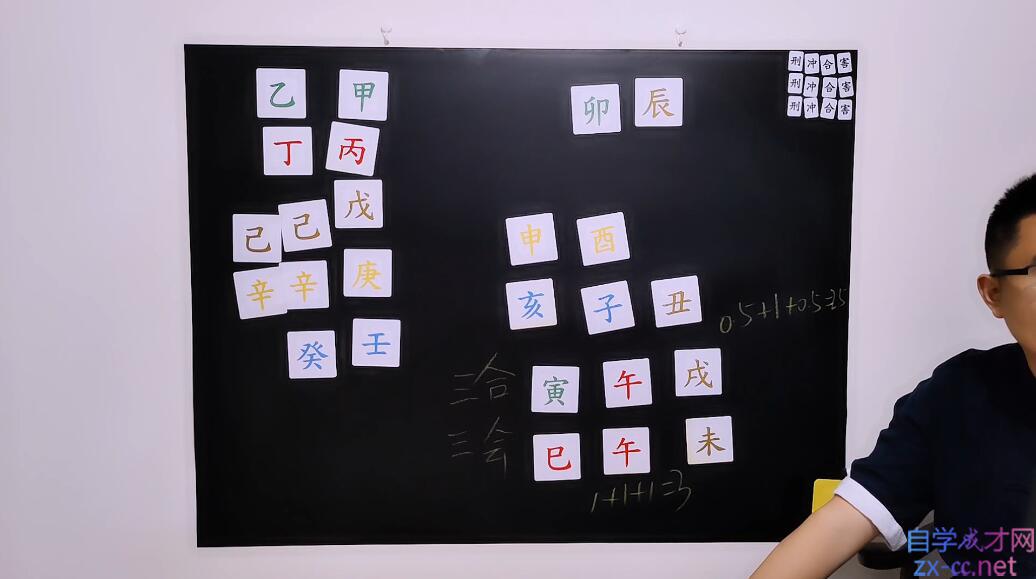 乙 甲
丁 丙
戊
己 己
辛 辛 庚
癸 壬
卯 辰
申 酉
亥 子 丑
0.5+1+0.5=2.5
三合 寅 午 戌
三会 巳 午 未
1+1+1=3
刑 冲 合 害
刑 冲 合 害
刑 冲 合 害
自学成才网
zx-cc.net